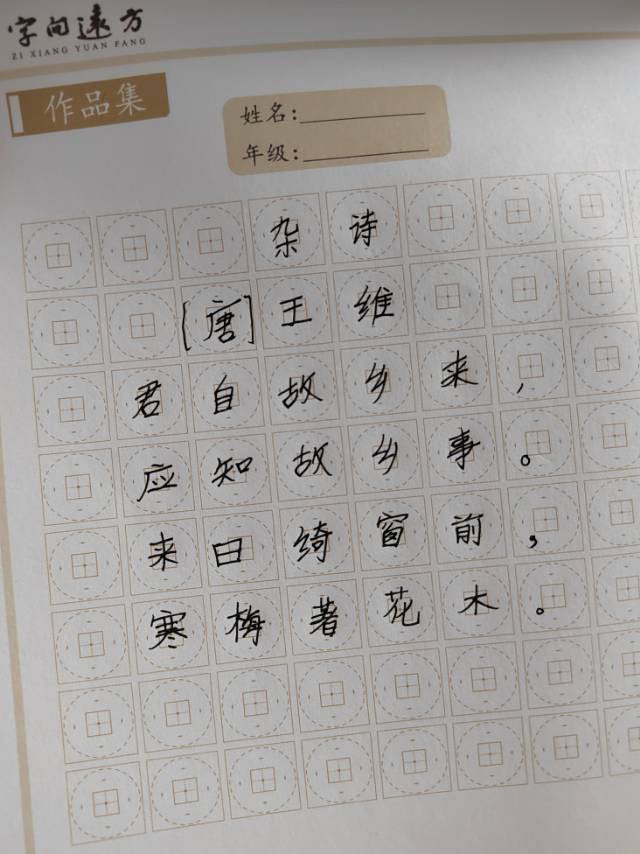 字向遠方
ZI XIANG YUAN FANG
作品集
姓名：
年级：
杂诗
[唐]王维
君自故乡来，
应知故乡事。
来日绮窗前，
寒梅著花木。